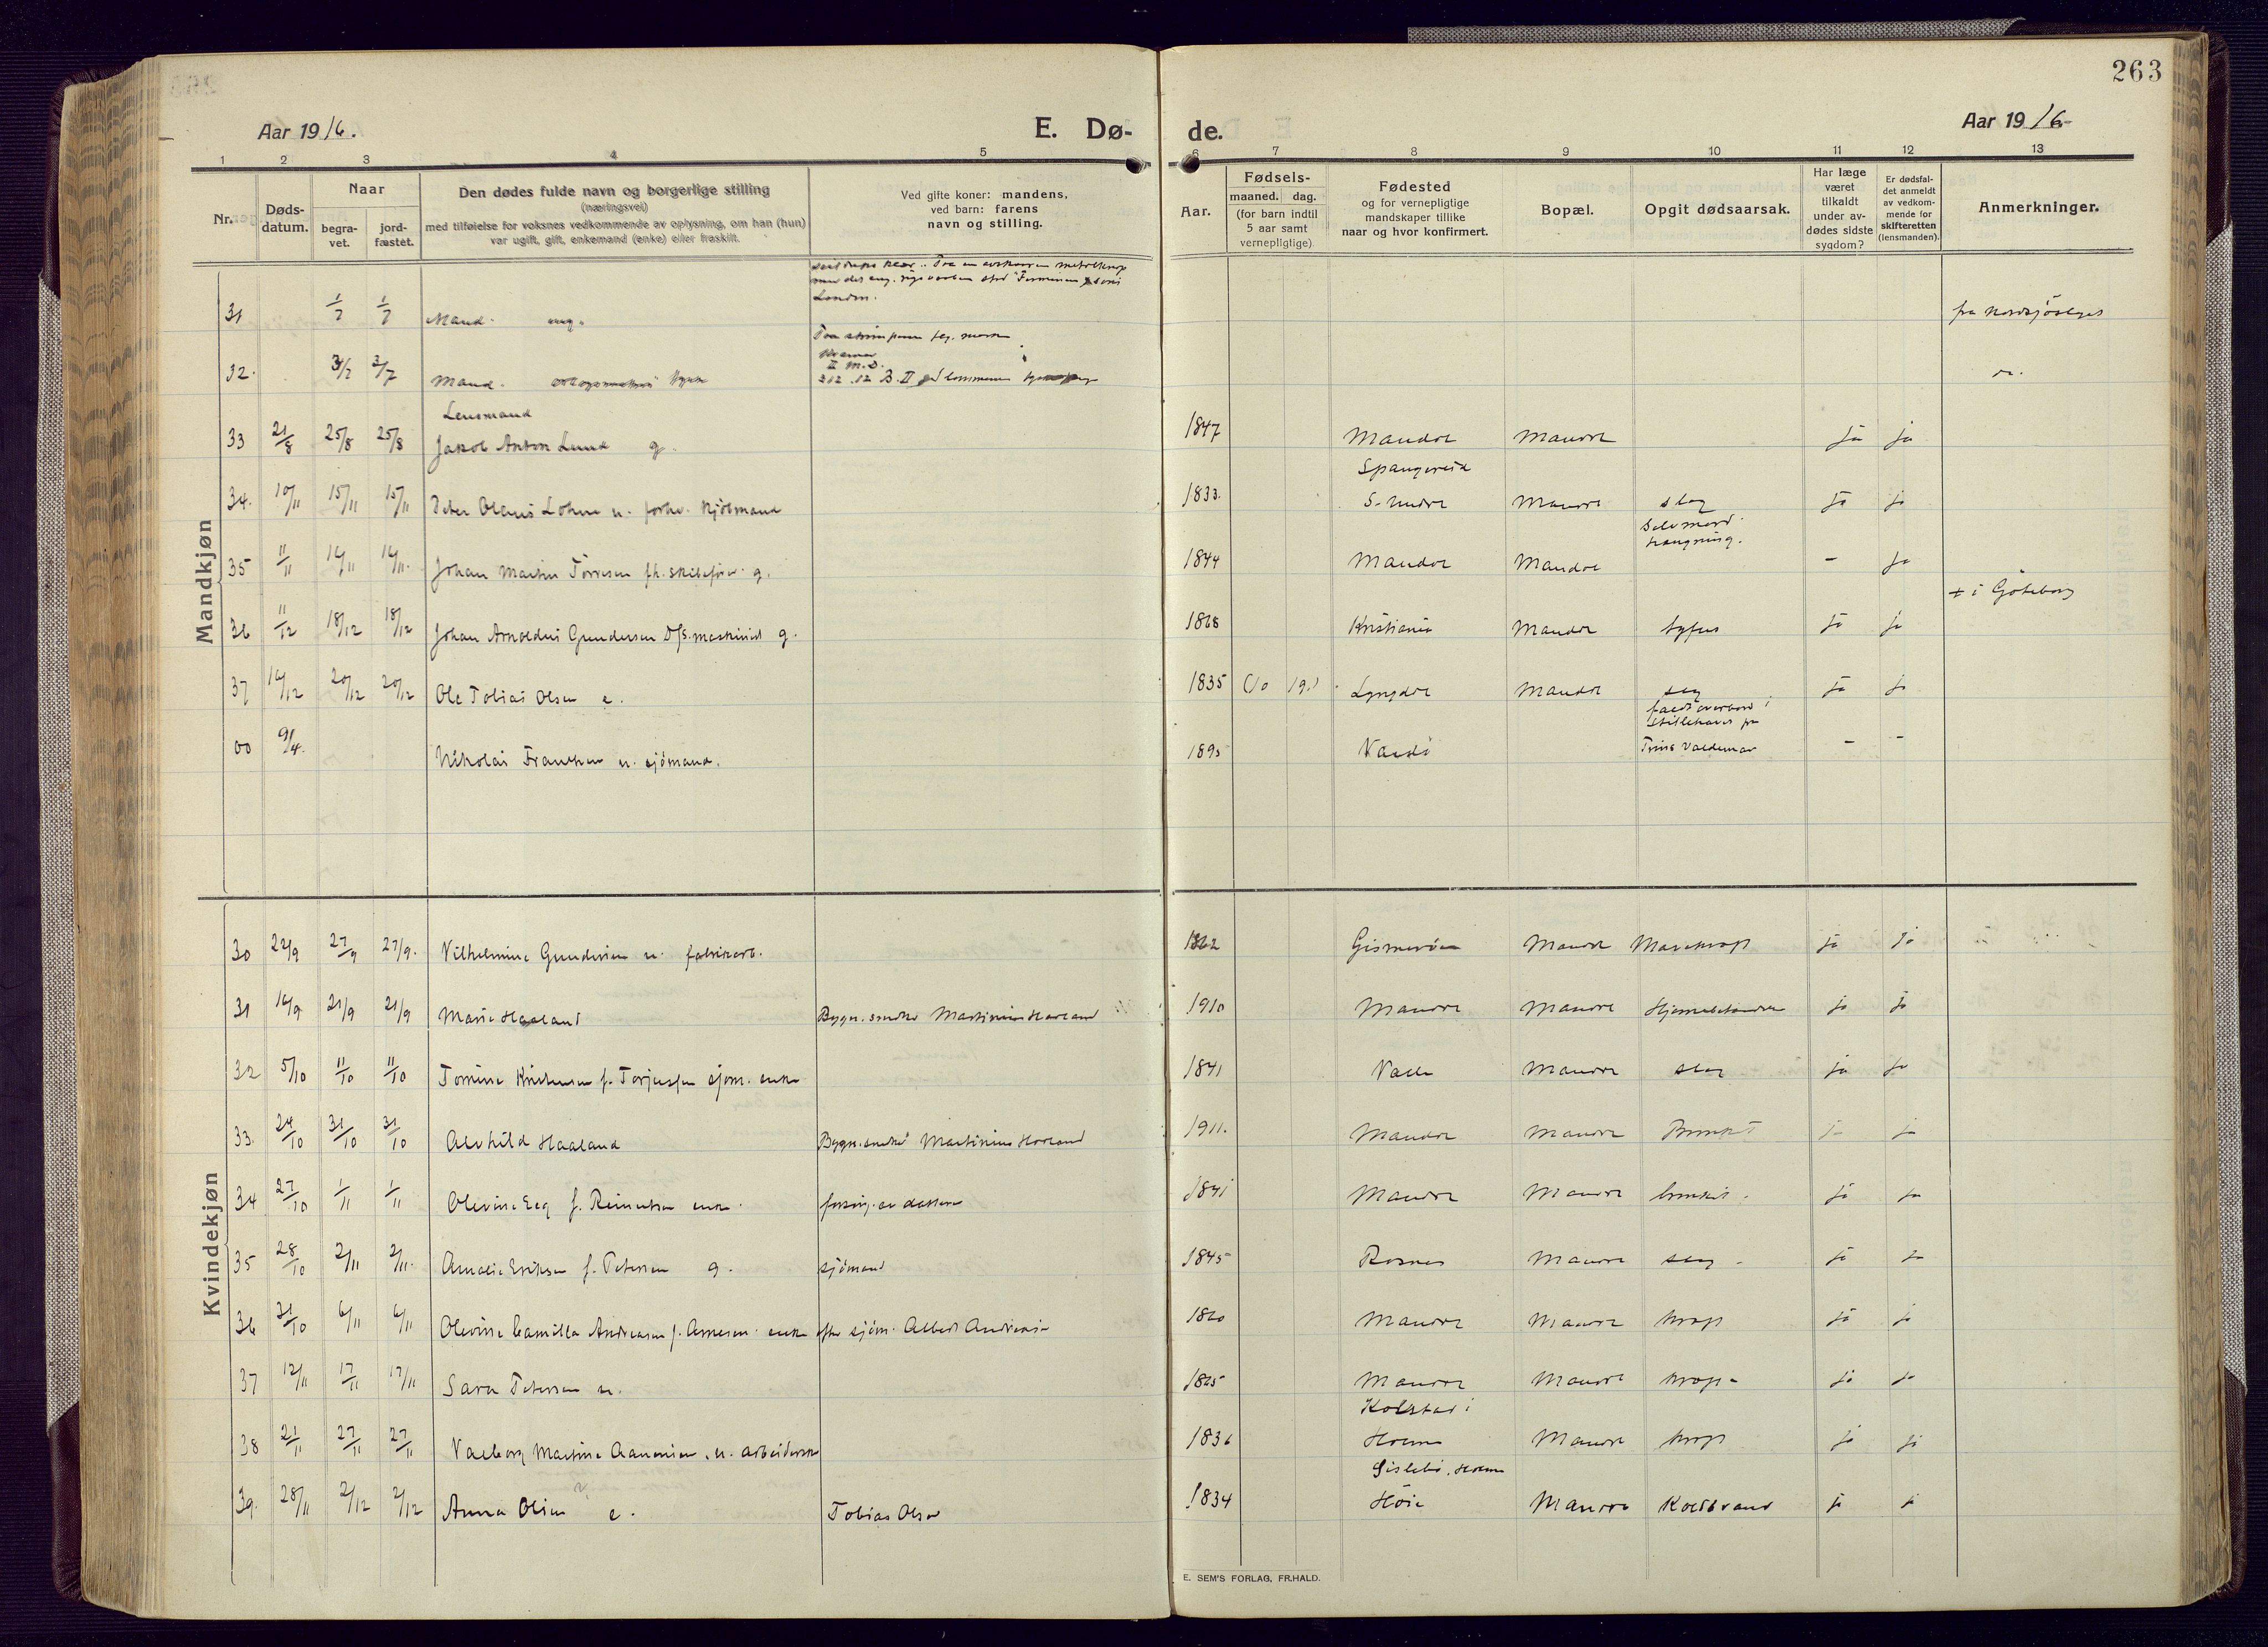 263
Aar 1916.
E. Dø-
de.
Aar 1916
1 2 3 4 5 6 7 8 9 10 11 12 13
Nr.
Døds-
datum.
Naar
begra-
vet.
jord-
fæstet.
Den dødes fulde navn og borgerlige stilling
(næringsvei)
med tilføielse for voksnes vedkommende av oplysning, om han (hun)
var ugift, gift, enkemand (enke) eller fraskilt.
Ved gifte koner: mandens,
ved barn: farens
navn og stilling.
Aar.
Fødsels-
maaned. dag.
(for barn indtil
5 aar samt
vernepligtige)
Fødested
og for vernepligtige
mandskaper tillike
naar og hvor konfirmert.
Bopæl.
Opgit dødsaarsak.
Har læge
været
tilkaldt
under av-
dødes sidste
sygdom?
Er dødsfal-
det anmeldt
av vedkom-
mende for
skifteretten
(lensmanden).
Anmerkninger.
Mandkjøn
London.
31 1/7 1/7 Mand. eng. fra Nordsjöslaget
II M.D.
32. 3/7 3/7 Mand.
Lensmand
33 21/8 25/8 25/8 Jakob Anton Lund g. 1847 Mandal Mandal ja ja
Spangereid
34. 10/11 15/11 15/11 Peter Olaus Lohne u. forhv. 1833. S. Undre Mandal slag ja ja
Selvmord.
hængning.
35 11/11 16/11 16/11. Johan Martin Torresen fh. skibsfører. g. 1844 Mandal Mandal - ja
+ i Göteborg
36 11/12 18/12 18/12 Johan Arnoldus Gundersen D/S. maskinist g. 1868 Kristiania Mandal tyfus ja ja
37 16/12 20/12 20/12 Ole Tobias Olsen e. 1835 (10 19.) Lyngdal Mandal slag ja ja
faldt overbord i
Stillehavet fra
00 9/4. Nikolai Frantzen u. sjömand. 1895 Vardö Prins Valdemar - -
Kvindekjøn
30 22/9 27/9 27/9. Vilhelmine Gundersen u. fabrikarb. 1862 Gismerøen Mandal Mavekræft ja ja
31 16/9 21/9 21/9 Marie Haaland Bygn. snedker Martinius Haaland 1910 Mandal Mandal Hjernebetændelse ja ja
32 5/10 11/10 11/10 Tomine Kristensen f. Torjussen sjøm. enke 1841 Valle Mandal slag ja ja
33. 24/10 31/10 31/10 Alvhild Haaland Bygn. snedker Martinius Haaland 1911. Mandal Mandal Bronkit ja ja
34 27/10 1/11 1/11 Olevine Eeg f. Reinertsen enke. forsørg. av datteren 1841 Mandal Mandal bronkit. ja ja
35 28/10 2/11 2/11. Amalie Eriksen f. Petersen g. sjömand 1845 Rosnes Mandal slag - ja ja
36 31/10 6/11 6/11 Olevine Camilla Andreasen f. Arnesen. enke efter sjöm. Albert Andreasen 1860 Mandal Mandal kræft ja ja
37 12/11 17/11 17/11 Sara Petersen u. 1865 Mandal Mandal kræft - ja ja
Kolstad i
38 21/11 27/11 27/11 Valborg Martine Aanensen. u. arbeiderske 1836 Holme Mandal kræft ja ja
Gislebø. Holme
39. 28/11 2/12 2/12 Anna Olsen e. Tobias Olsen 1834 Höie Mandal Koldbrand ja ja
E. SEM'S FORLAG, FR.HALD.